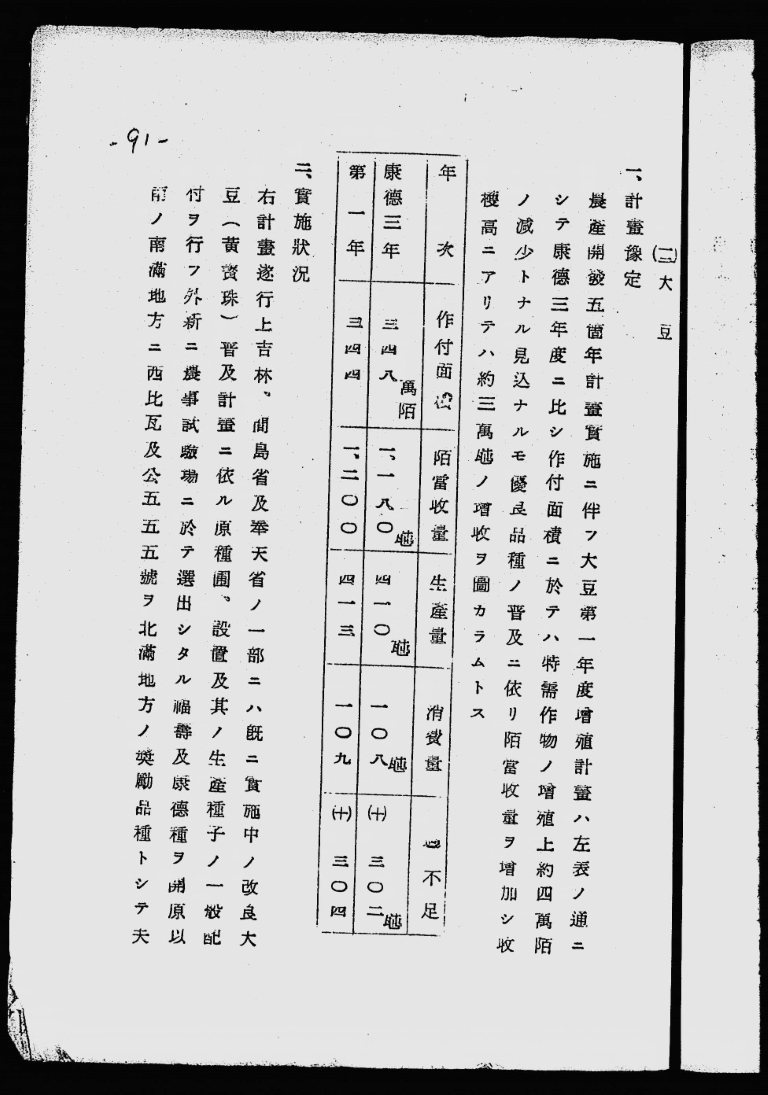 -91-
(二)大豆
一、計畫豫定
農產開發五箇年計畫實施ニ伴フ大豆第一年度增殖計畫ハ左表ノ通ニ
シテ康德三年度ニ比シ作付面積ニ於テハ特需作物ノ增殖上約四萬陌
ノ減少トナル見込ナルモ優良品種ノ晋及ニ依リ陌當收量ヲ增加シ收
穫高ニアリテハ約三萬瓲ノ增收ヲ圖カラムトス
年次 作付面積 陌當收量 生產量 消費量 過不足
康德三年 三四八萬陌 一、一八〇瓲 四一〇瓲 一〇八瓲 (十)三〇二瓲
第一年 三四四 一、二〇〇 四一三 一〇九 (十)三〇四
二、實施狀況
右計畫遂行上吉林、間島省及奉天省ノ一部ニハ旣ニ實施中ノ改良大
豆(黃寶珠)晋及計畫ニ依ル原種圃、設置及其ノ生產種子ノ一般配
付ヲ行フ外新ニ農事試驗場ニ於テ選出シタル福壽及康德種ヲ開原以
南ノ南滿地方ニ西比瓦及公五五五號ヲ北滿地方ノ奬勵品種トシテ夫